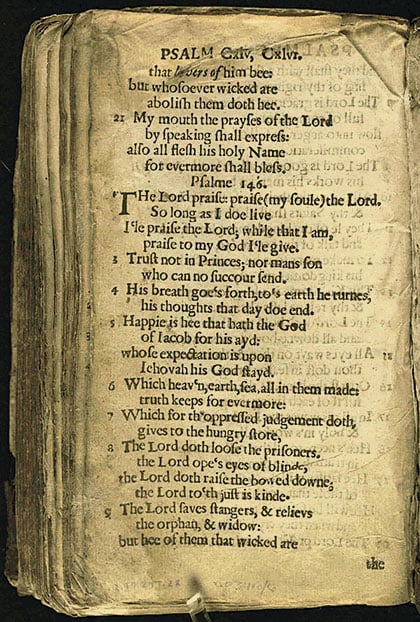 PSALM Cxlv, Cxlvi.
that lovers of him bee:
but whosoever wicked are
abolish them doth hee.
21 My mouth the prayses of the Lord
by speaking shall express:
also all flesh his holy Name
for evermore shall bless.
Psalme 146.
THe Lord praise: praise (my soule) the Lord.
So long as I doe live
I'le praise the Lord; while that I am,
praise to my God I'le give.
3 Trust not in Princes; nor mans son
who can no succour send.
4 His breath goe's forth, to's earth he turnes,
his thoughts that day doe end.
5 Happie is hee that hath the God
of Iacob for his ayd:
whose expectation is upon
Iehovah his God stayd.
6 Which heav'n, earth, sea, all in them made:
truth keeps for evermore:
7 Which for th'oppressed judgement doth,
gives to the hungry store,
8 The Lord doth loose the prisoners.
the Lord ope's eyes of blinde,
the Lord doth raise the bowed downe;
the Lord to'th just is kinde.
9 The Lord saves stangers, & relievs
the orphan, & widow:
but hee of them that wicked are
the